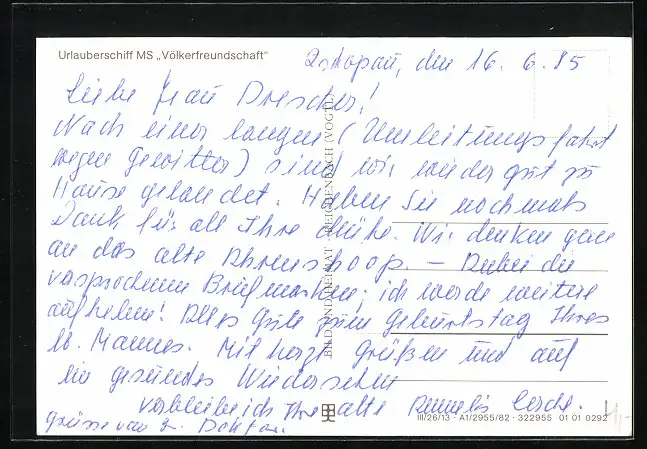 Urlauberschiff MS „Völkerfreundschaft"
Zschopau, den 16. 6. 85
Liebe Frau Drescher!
Nach einer langen (Umleitungsfahrt
wegen Gewitter) sind wir wieder gut zu
Hause gelandet. Haben Sie nochmals
Dank für all Ihre Mühe. Wir denken gern
an das alte Ahrenshoop. – Anbei die
versprochenen Briefmarken; ich werde weitere
aufheben! Alles Gute zum Geburtstag Ihres
lb. Mannes. Mit herzl. Grüßen und auf
ein gesundes Wiedersehen
verbleibe ich Ihre alte
Grüsse von
BILD UND HEIMAT · REICHENBACH (VOGTL)
III/26/13 · A1/2955/82 · 322955 01 01 0292